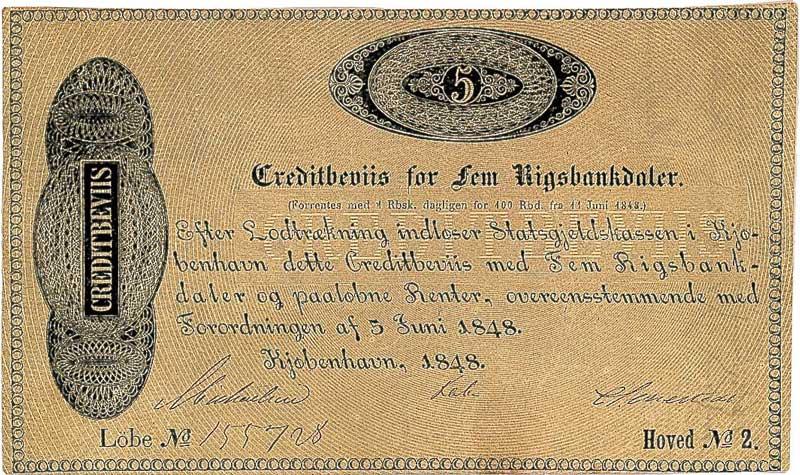 5
CREDITBEVIIS
Creditbeviis for Fem Rigsbankdaler.
(Forrentes med 1 Rbsk. dagligen for 100 Rbd. fra 11 Juni 1848.)
Efter Lodtrækning indløser Statsgjeldskassen i Kjø-
benhavn dette Creditbeviis med Fem Rigsbank-
daler og paaløbne Renter, overeensstemmende med
Forordningen af 5 Juni 1848.
Kjøbenhavn, 1848.
Løbe № 155728
Hoved № 2.